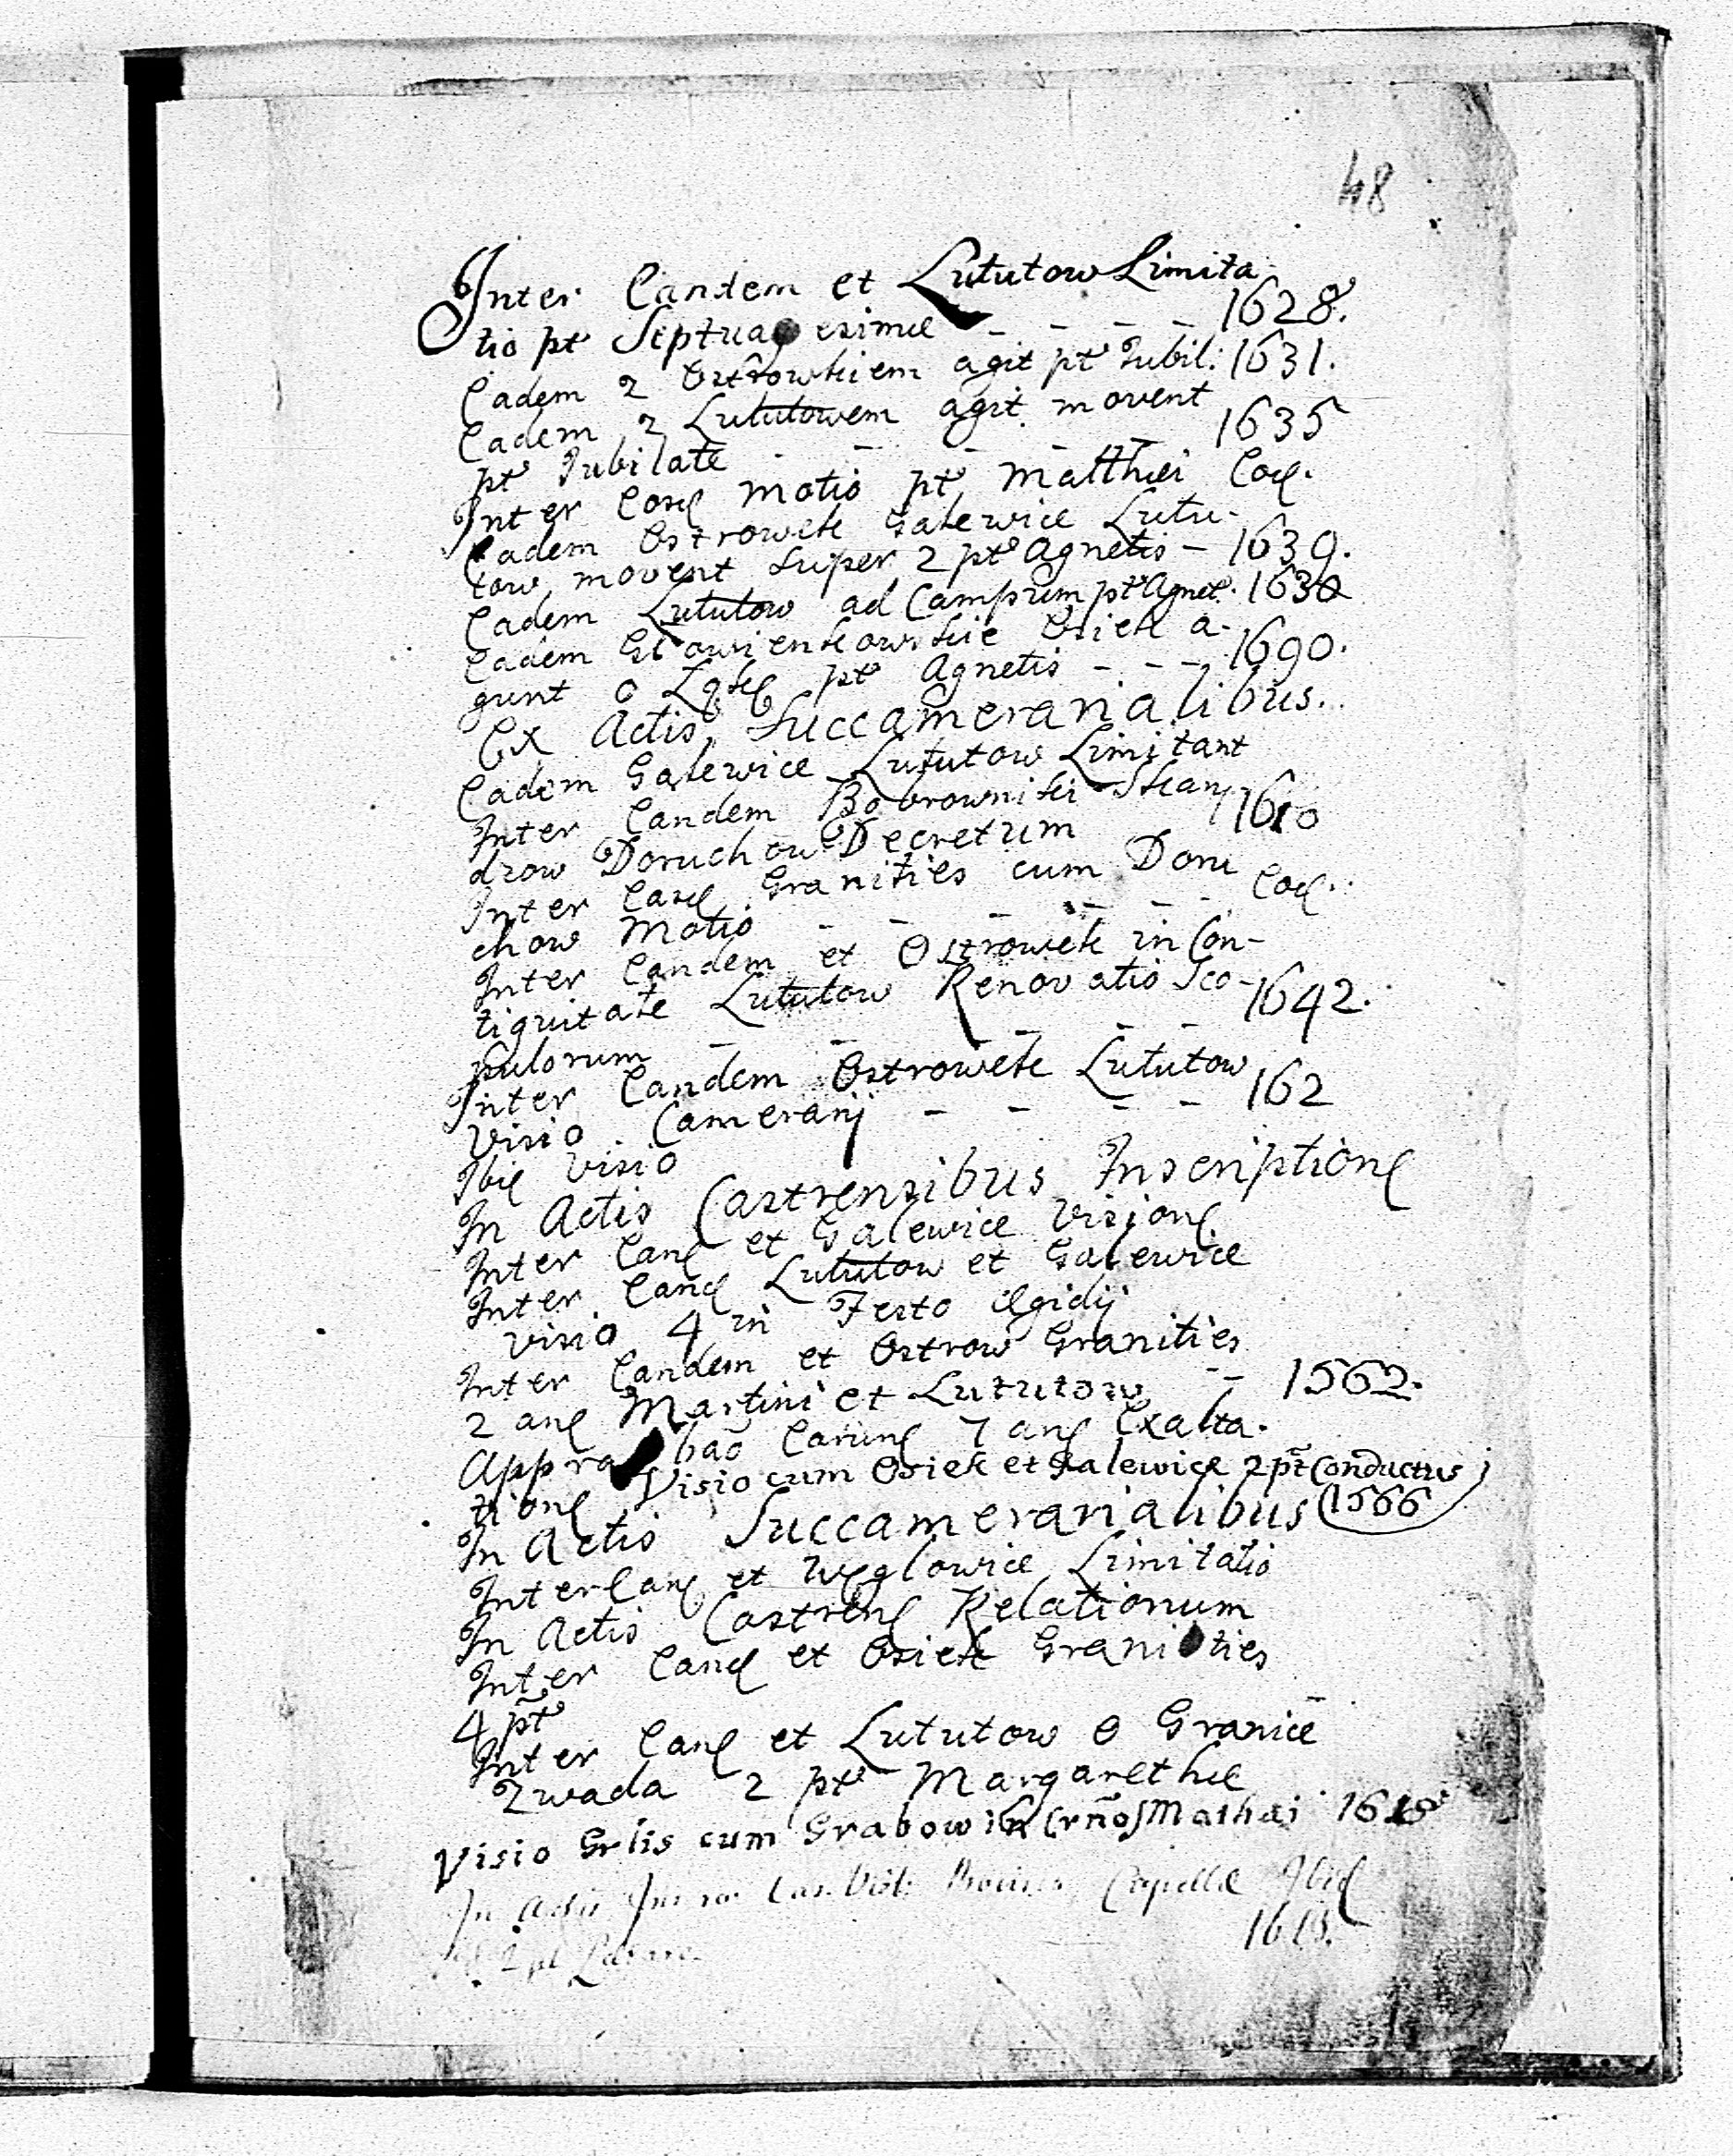 48
Inter Eandem et Lututow Limita
tio pt Septuagesimae - - - - 1628.
Eadem 2 Ostrowskiem agit pt Jubil: 1631.
Eadem 2 Lututowem agit movent
pt Jubilate - - - - - 1635
Inter Eosd Motio pt Matthaei Eod.
Eadem Ostrowek Galewice Lutu-
tow movent super 2 pt Agnetis - 1639.
Eadem Lututow ad Campum pt Agnet. 1630
Eadem Osiek a-
gunt o Łąkę pt Agnetis - - - 1690.
Ex Actis Succamerarialibus..
Eadem Galewice Lututow Limitant
Inter Eandem Bobrowniki Skąm
drow Doruchow Decretum 1610
Inter Easd Granities cum Doru
chow Motio - - - - - - Eod..
Inter Eandem et Ostrowek in Con-
tiguitate Lututow Renovatio Sco-
pulorum - - - - - - 1642.
Inter Eandem Ostrowek Lututow
Visio Camerarij - - - - 162
Ibid Visio
In Actis Castrensibus Inscription
Inter Eand et Galewice Vision
Inter Eand Lututow et Galewice
Visio 4 in Festo Ægidij
Inter Eandem et Ostrow Granities
2 an Martini et Lututow - 1562.
Appro bao Earund 7 an Exalta.
tion Visio cum Osiek et Galewice 2 pt Conductus
In Actis Succamerarialibus 1566
Inter Eand et Węglowice Limitatio
In Actis Castren Relationum
Inter Eand et Osiek Granities
4 pt
Inter Eand et Lututow o Granice
Zwada 2 pt Margarethae
Visio Grlis cum Grabowik Crno Mathaei
In Actis Capellae Ibid
2 pt 1613.